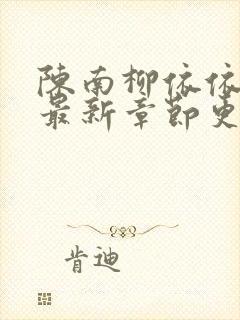 陈南柳依依
最新章节更
肯迪